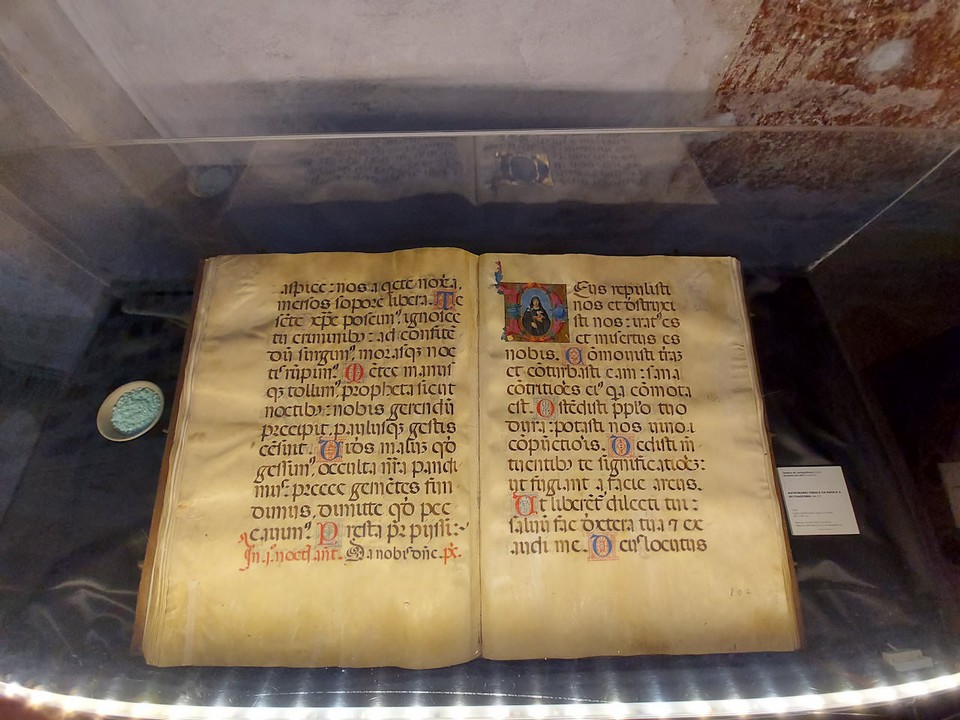 aspice: nos a q̄ete noxia,
mersos sopore libera. Te
sc̄te xp̄e poscim⁹ ignosce
tu criminibꝫ: ad confitē
dū surgim⁹, morasqꝫ noc
tis rūpim⁹. Mētes manus
qꝫ tollim⁹, propheta sicut
noctibꝫ: nobis gerendū
precipit, paulusqꝫ gestis
cēsuit. Uides malū qd̄
gessim⁹, occulta nr̄a pandi
mus: preces gemētes fun
dimus, dimitte qd̄ pec
cauim⁹. Presta pr̄ pijssi:
In .i. noct̄ ant̄. Da nobis dn̄e. ps.
Deus repulisti
nos et destruxi
sti nos: irat⁹ es
et misertus es
nobis. Cōmouisti t̄rā
et cōturbasti eam: sana
cōtritiōes ei⁹ qa cōmota
est. Ostēdisti pplō tuo
dura: potasti nos uino
cōpūctiōis. Dedisti m̄
tuentibꝫ te significatiōe:
ut fugiant a facie arcus.
Ut liberēt dilecti tui:
saluū fac dextera tua ⁊ ex
audi me. Deus locutus